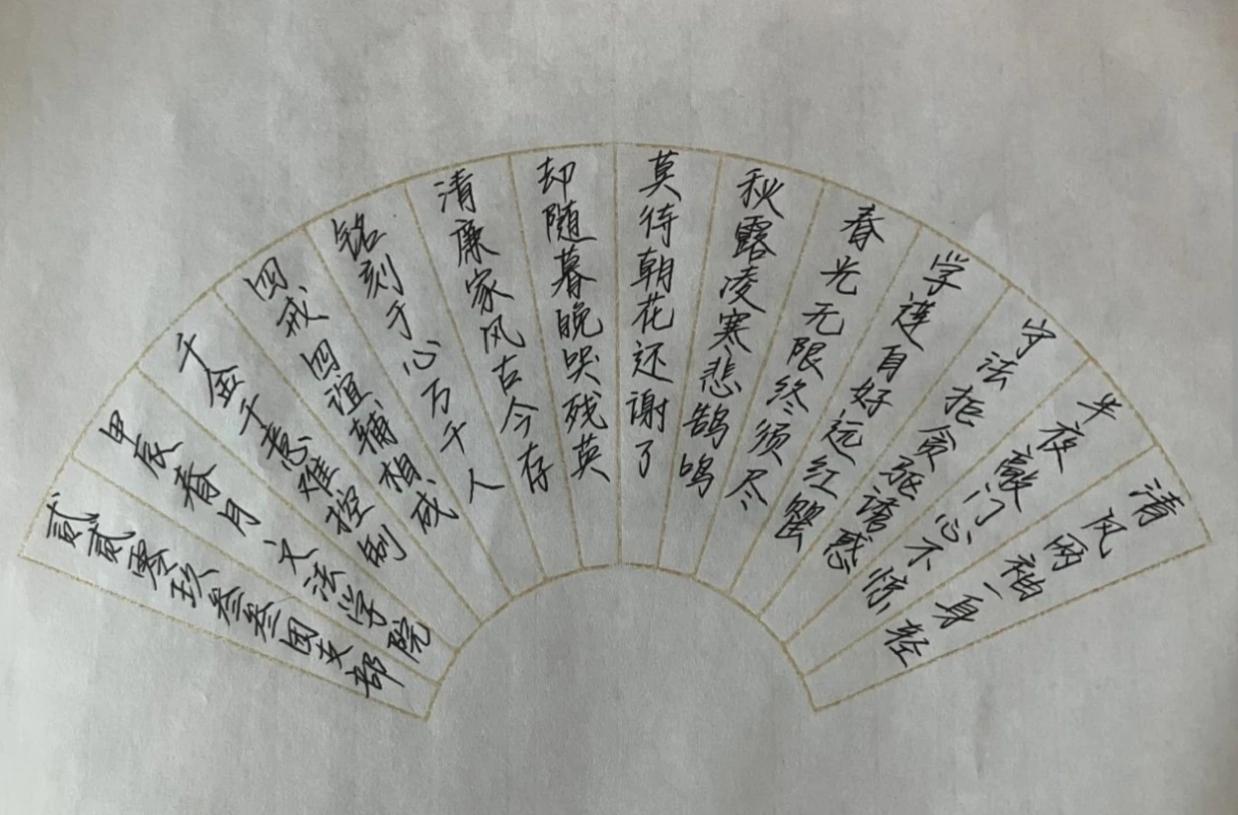 清风两袖一身轻
半夜敲门心不惊
守法拒贪驱诱惑
学莲自好远红罂
春光无限终须尽
秋露凌寒悲鹄鸣
莫待朝花还谢了
却随暮晚哭残英
清廉家风古今存
铭刻于心万千人
四戒四谊辅相成
千金千意难控制
甲辰春月 文法学院
贰贰零玖叁叁团支部